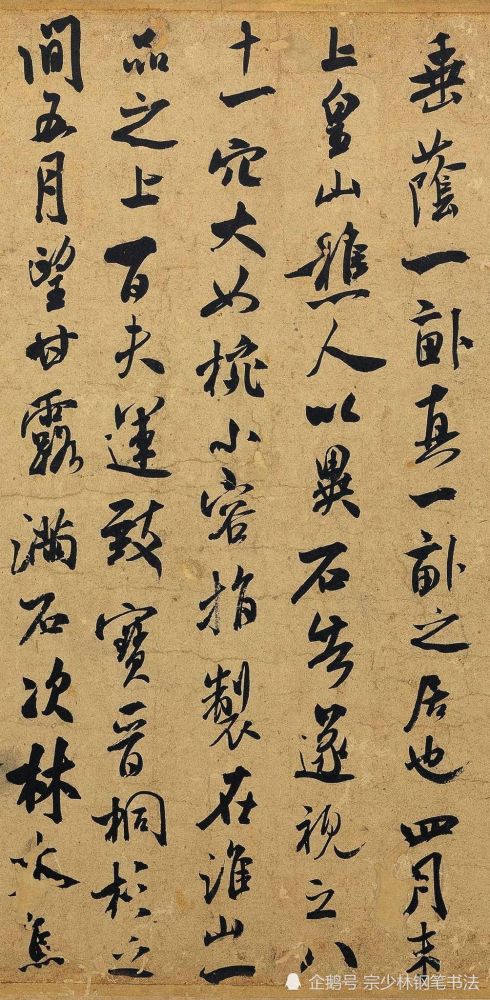 垂蔭一畝真一畝之居也四月末
上皇山樵人以異石告遂視之八
十一穴大如椀小容指製在淮山一
品之上百夫運致寶晉桐杉之
間五月望甘露滿石次林木焦
企鹅号 宗少林钢笔书法